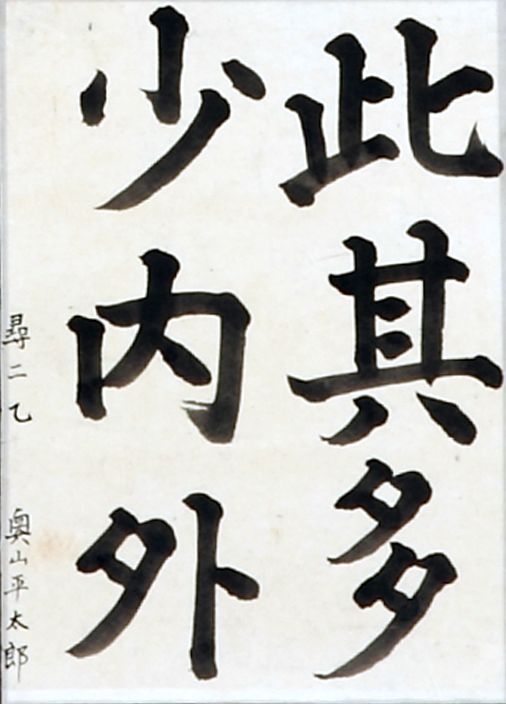 此其多
少内外
尋二乙 奥山平太郎